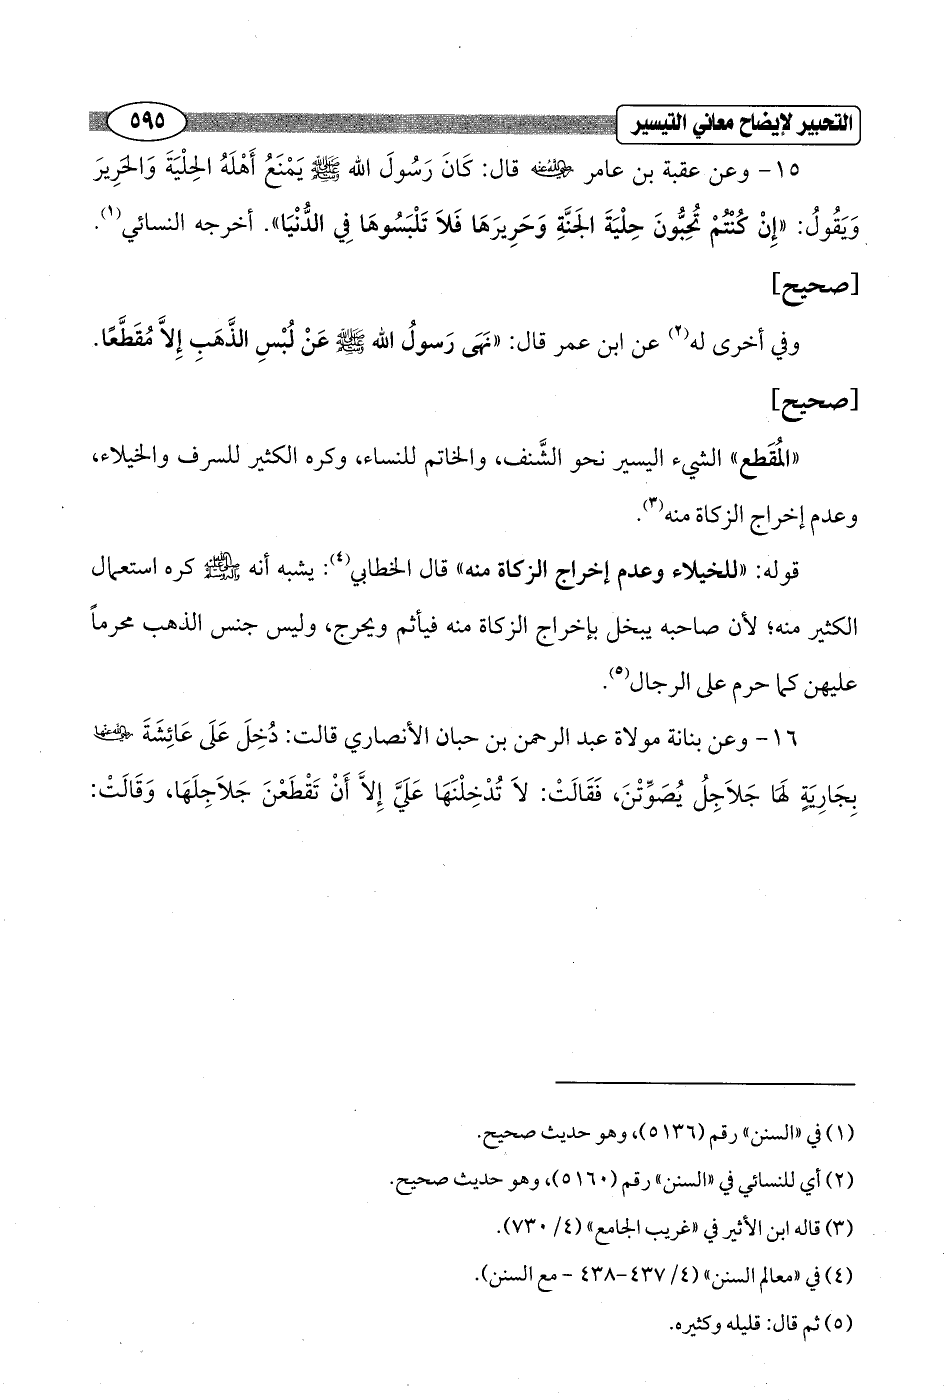 التحبير لإيضاح معاني التيسير ٥٩٥
١٥- وعن عقبة بن عامر رضي الله عنه قال: كَانَ رَسُولَ الله ﷺ يَمْنَعُ أَهْلَهُ الحِلْيَةَ وَالحَرِيرَ
وَيَقُولُ: «إِنْ كُنْتُمْ تُحِبُّونَ حِلْيَةَ الجَنَّةِ وَحَرِيرَهَا فَلاَ تَلْبَسُوهَا فِي الدُّنْيَا». أخرجه النسائي(١).
[صحيح]
وفي أخرى له(٢) عن ابن عمر قال: «نَهَى رَسولُ الله ﷺ عَنْ لُبْسِ الذَّهَبِ إِلاَّ مُقَطَّعًا.
[صحيح]
«المُقَطع» الشيء اليسير نحو الشَّنف، والخاتم للنساء، وكره الكثير للسرف والخيلاء،
وعدم إخراج الزكاة منه(٣).
قوله: «للخيلاء وعدم إخراج الزكاة منه» قال الخطابي(٤): يشبه أنه ﷺ كره استعمال
الكثير منه؛ لأن صاحبه يبخل بإخراج الزكاة منه فيأثم ويحرج، وليس جنس الذهب محرماً
عليهن كما حرم على الرجال(٥).
١٦- وعن بنانة مولاة عبد الرحمن بن حبان الأنصاري قالت: دُخِلَ عَلَى عَائِشَةَ رضي الله عنها
بِجَارِيَةٍ لهَا جَلاَجِلُ يُصَوِّتْنَ، فَقَالَتْ: لاَ تُدْخِلْنَهَا عَلَيَّ إِلاَّ أَنْ تَقْطَعْنَ جَلاَجِلَهَا، وَقَالَتْ:
(١) في «السنن» رقم (٥١٣٦)، وهو حديث صحيح.
(٢) أي للنسائي في «السنن» رقم (٥١٦٠)، وهو حديث صحيح.
(٣) قاله ابن الأثير في «غريب الجامع» (٤/ ٧٣٠).
(٤) في «معالم السنن» (٤/ ٤٣٧-٤٣٨ - مع السنن).
(٥) ثم قال: قليله وكثيره.